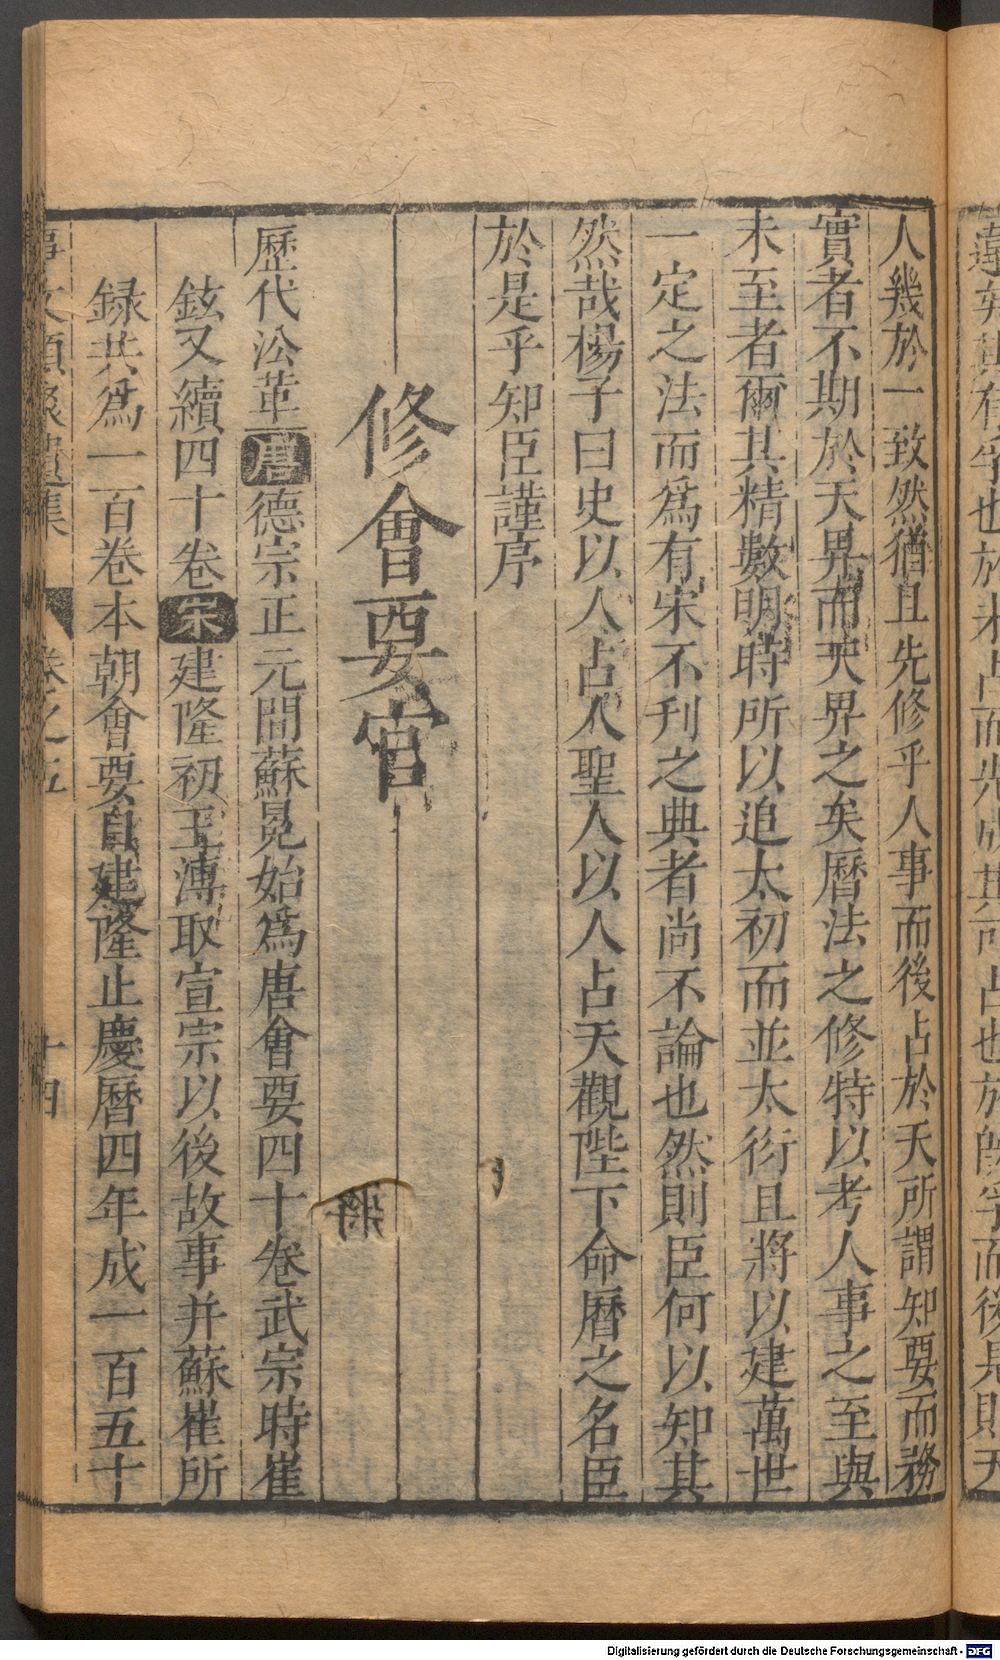 人幾於一致然猶且先修乎人事而後占於天所謂知要而務
實者不期於天界而天界之矣曆法之修特以考人事之至與
未至者爾其精數明時所以追太初而並太衍且將以建萬世
一定之法而爲有宋不刋之典者尚不論也然則臣何以知其
然哉楊子曰史以人占人聖人以人占天觀陛下命曆之名臣
於是乎知臣謹序
修會要官
歷代㳂革唐德宗正元間蘇冕始爲唐會要四十卷武宗時崔
鉉又續四十卷宋建隆初王溥取宣宗以後故事并蘇崔所
録共爲一百卷本朝會要自建隆止慶曆四年成一百五十
事文類聚遺集 卷之五 十四
Digitalisierung gefördert durch die Deutsche Forschungsgemeinschaft - DFG